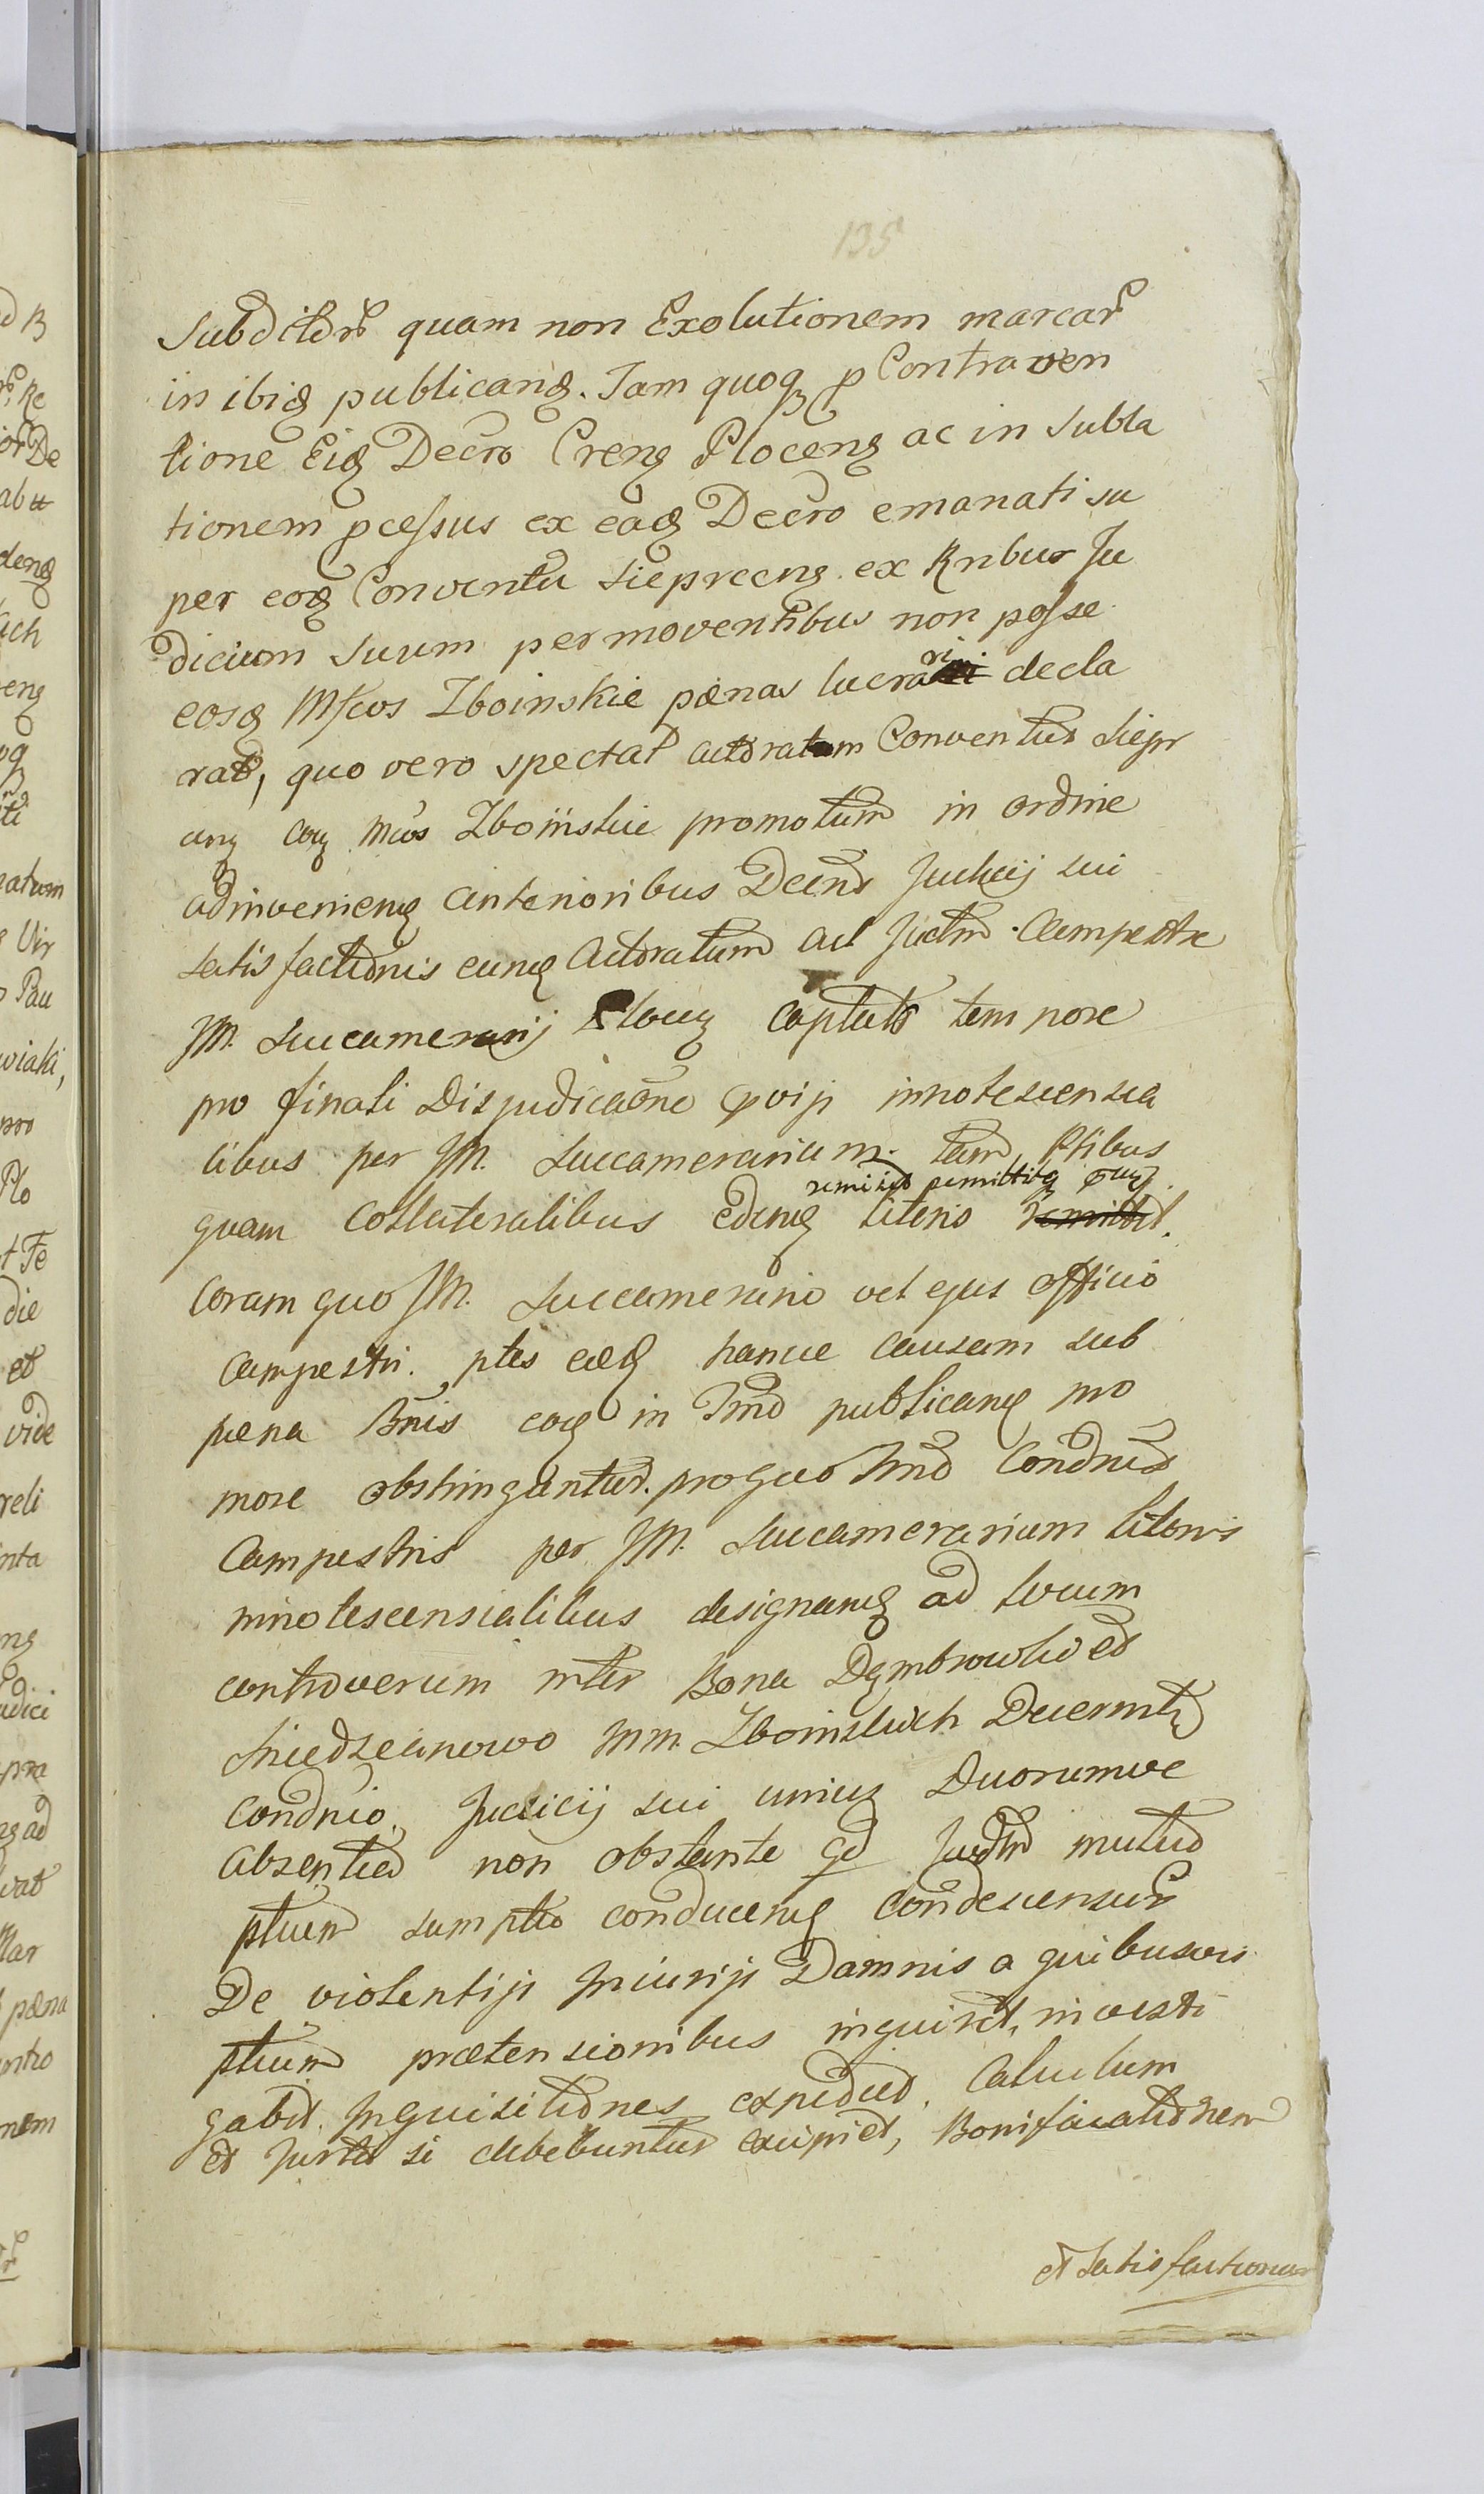 135
Subditor quam non Exolutionem marcar
in ibid publicand. Tam quoq p Contraven
tione Eid Decro Crens Plocens ac in subla
tionem pcessus ex eod Decro emanati su
per eod Conventu Sieprcens ex Rnibus Ju
dicium Suum permoventibus non posse
eosd Mfcos Zboinskie pænas lucrari decla
rat, quo vero spectat actoratum Conventus Siepr
cens Mcos Zboinskie promotum in ordine
adinveniend anterioribus Decris Judicij sui
satisfactionis eund Actoratum ad Judm Campestre
JM. Succamerarij Plocen captato tempore
pro finali Disjudicaone innotescensia
libus per JM. Succamerarium tam Ptibus
remittitq
quam Collateralibus edend literis remittit.
Coram quo JM. Succamerario vel ejus officio
Campestri ptes eæd hancce causam sub
pæna in Tmo publicand pro
more obstringuntur. pro quo Tmo Condnis
Campestris per JM. Succamerarium literis
innotescensialibus designand ad locum
controversum inter Bona Dęmbrowko et
MM. Zboinskich
Condnio Judicij sui unius Duorumve
absentia non obstante qd Judm mutuo
ptium sumptu conducend condescensur
De violentijs Injurijs Damnis a quibusvis
ptium prætensionibus inquiret, investi
gabit. Inquisitiones expediet, Calculum
et Jurta si debebuntur excipiet, Bonificationem
et Satisfactionem